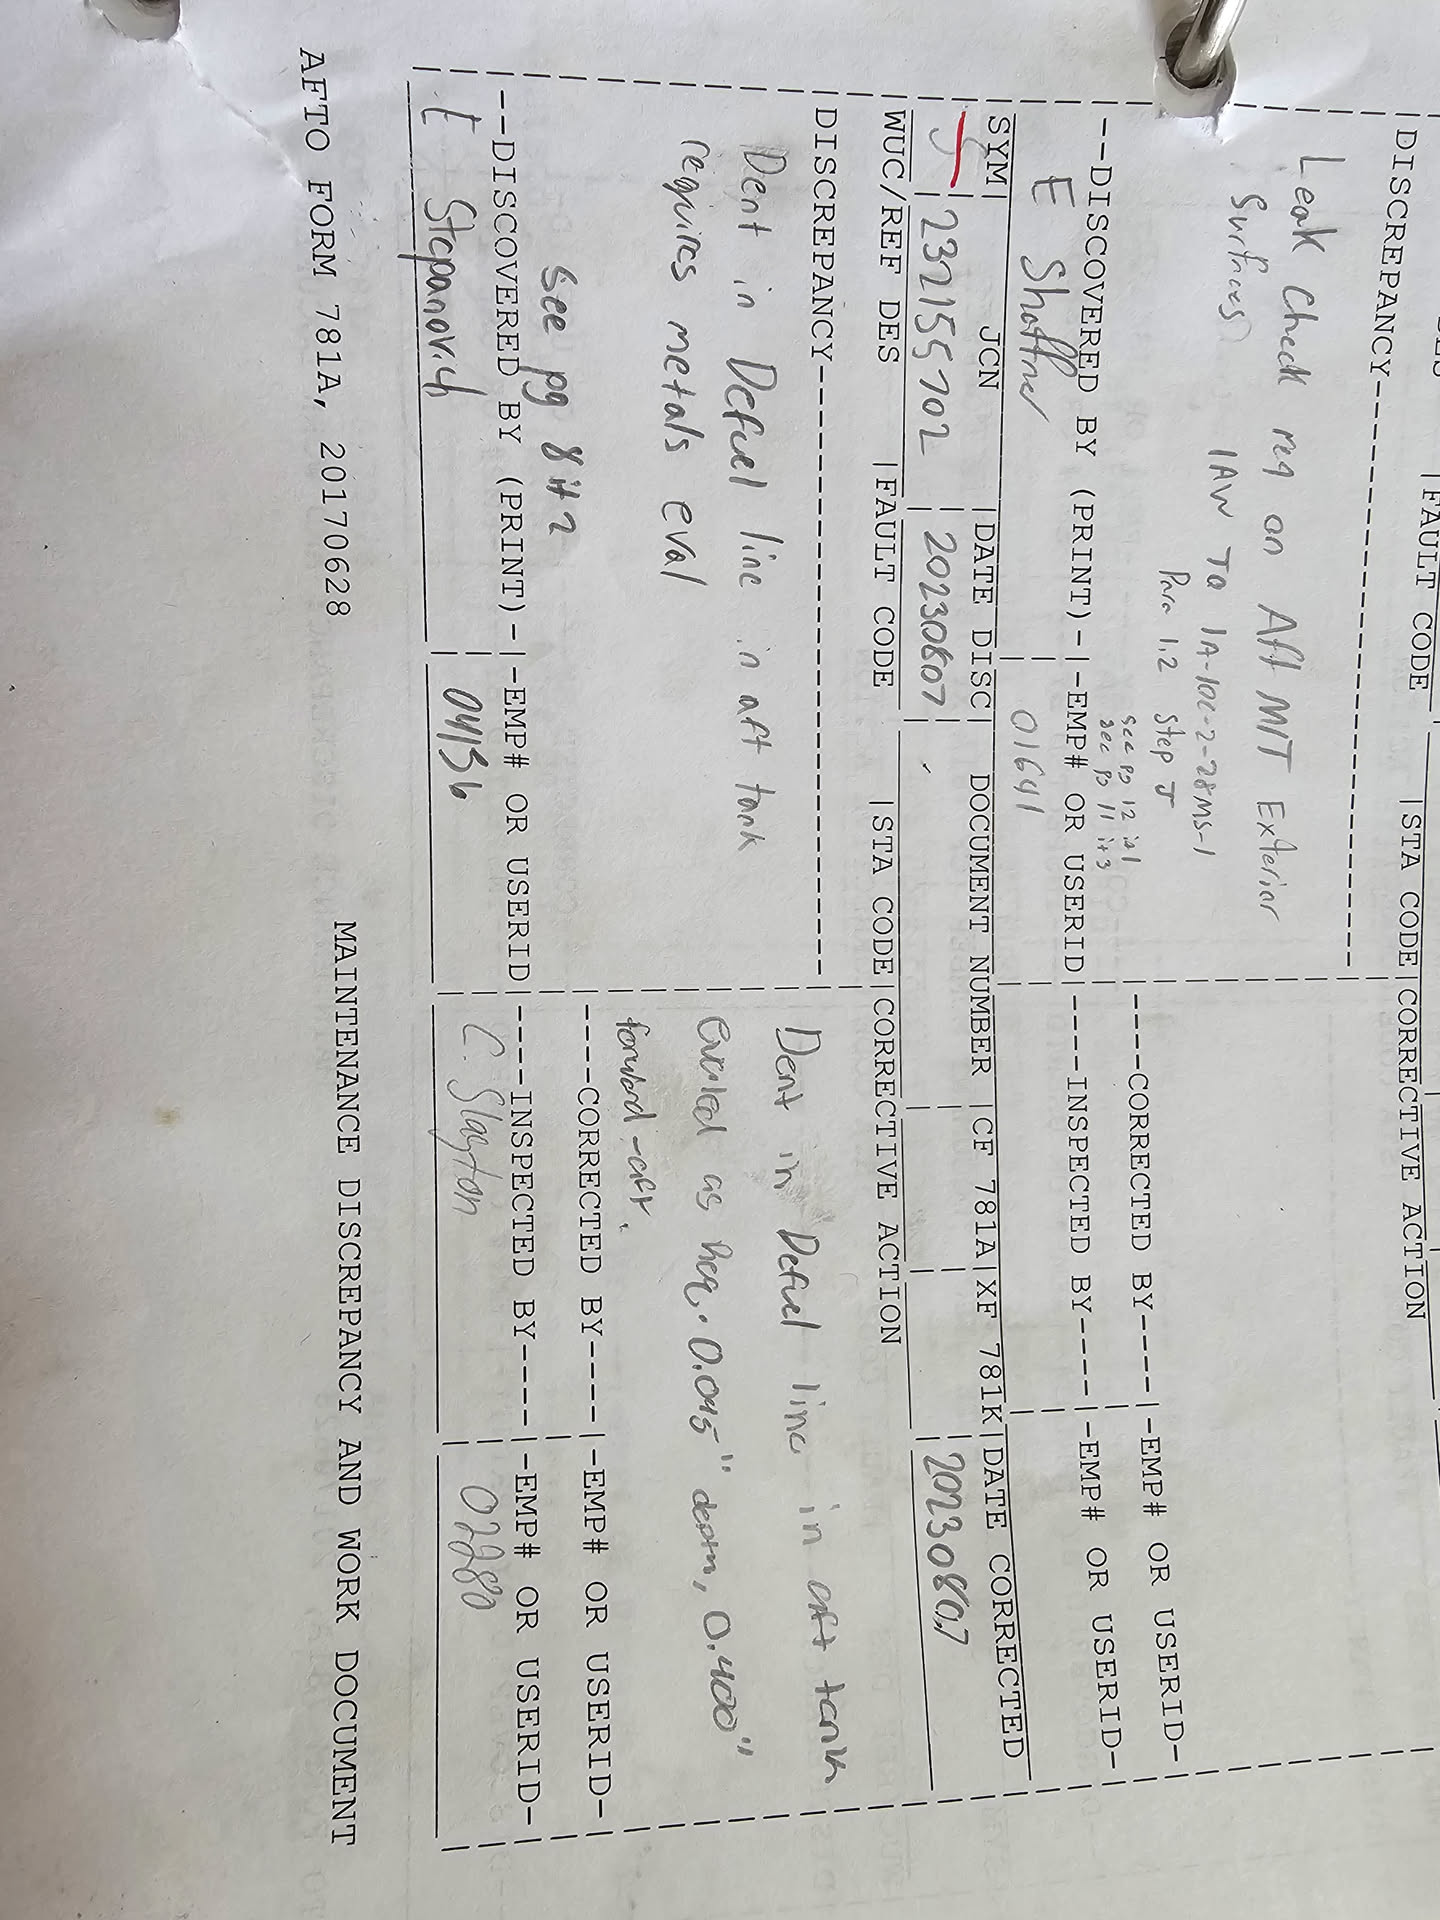 |FAULT CODE |STA CODE|CORRECTIVE ACTION
DISCREPANCY
Leak Check req on Aft MT Exterior
Surfaces IAW TO 1A-10C-2-28MS-1
Para 1.2 Step J
see pg 12 it 1
see pg 11 it 3
----CORRECTED BY----|-EMP# OR USERID-
--DISCOVERED BY (PRINT)-|-EMP# OR USERID|----INSPECTED BY----|-EMP# OR USERID-
E Shaffner 01641
SYM| JCN |DATE DISC| DOCUMENT NUMBER |CF 781A|XF 781K|DATE CORRECTED
232155702 20230807 20230807
WUC/REF DES |FAULT CODE |STA CODE|CORRECTIVE ACTION
DISCREPANCY
Dent in Defuel line in aft tank
requires metals eval
see pg 8 it 2
Dent in Defuel line in aft tank
as Req. 0.045" 0.400"
forward-aft.
----CORRECTED BY----|-EMP# OR USERID-
--DISCOVERED BY (PRINT)-|-EMP# OR USERID|----INSPECTED BY----|-EMP# OR USERID-
E Stepanovich 04136 C. Slayton 02280
AFTO FORM 781A, 20170628 MAINTENANCE DISCREPANCY AND WORK DOCUMENT